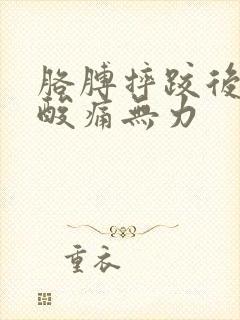 胳膊摔跤後
酸痛無力
重衣